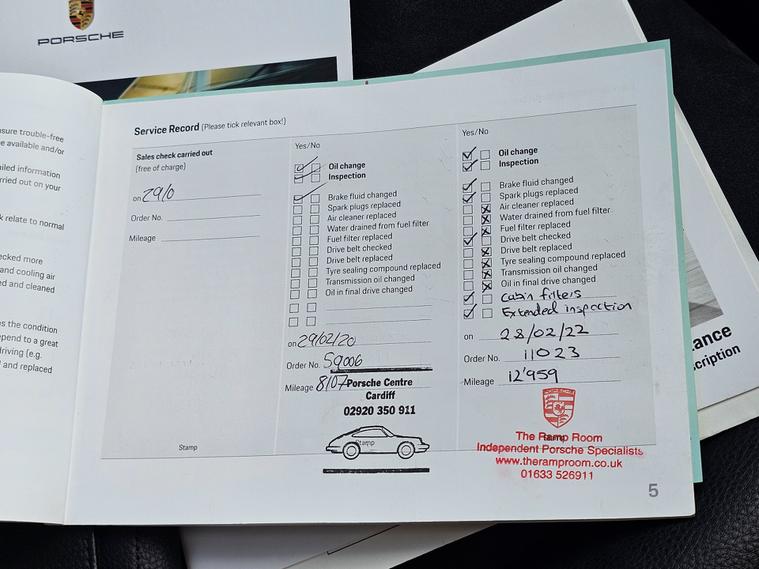 PORSCHE
sure trouble-free
e available and/or
ailed information
rried out on your
k relate to normal
ecked more
and cooling air
ed and cleaned
es the condition
epend to a great
driving (e.g.
and replaced
Service Record (Please tick relevant box!)
Sales check carried out
(free of charge)
on 29/0
Order No.
Mileage
Stamp
Yes/No
Oil change
Inspection
Brake fluid changed
Spark plugs replaced
Air cleaner replaced
Water drained from fuel filter
Fuel filter replaced
Drive belt checked
Drive belt replaced
Tyre sealing compound replaced
Transmission oil changed
Oil in final drive changed
on 29/02/20
Order No. 59006
Mileage 8107
Porsche Centre
Cardiff
02920 350 911
Stamp
Yes/No
Oil change
Inspection
Brake fluid changed
Spark plugs replaced
Air cleaner replaced
Water drained from fuel filter
Fuel filter replaced
Drive belt checked
Drive belt replaced
Tyre sealing compound replaced
Transmission oil changed
Oil in final drive changed
Cabin filters
Extended inspection
on 28/02/22
Order No. 11023
Mileage 12'959
The Ramp Room
Independent Porsche Specialists
www.theramproom.co.uk
01633 526911
5
ance
cription